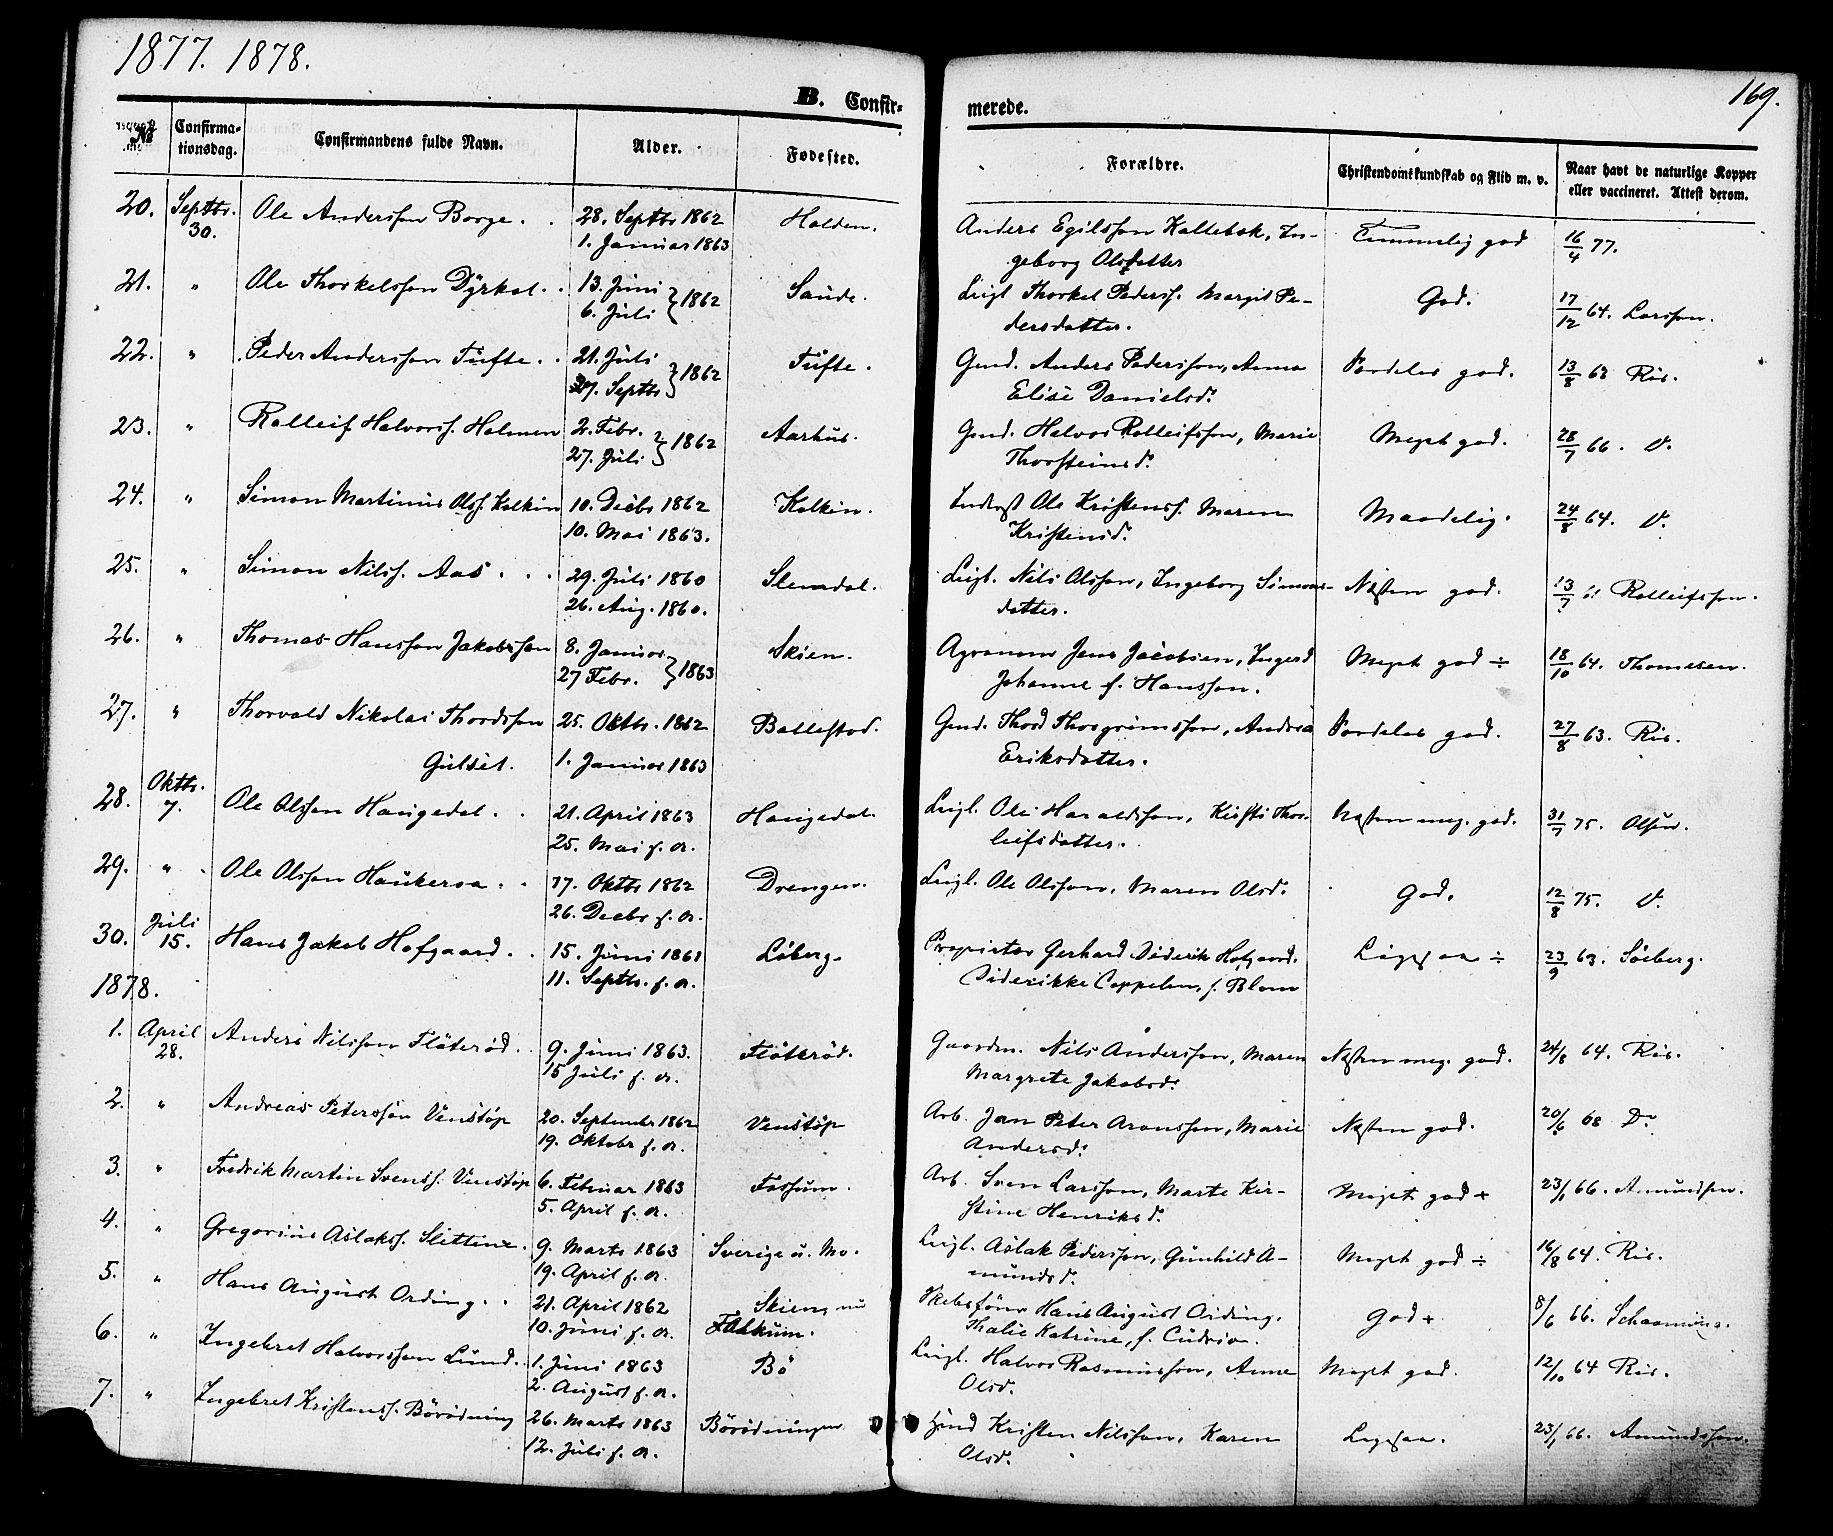 1877. 1878.
169.
B. Confir-
merede.
No
Confirma-
tionsdag.
Confirmandens fulde Navn.
Alder.
Fødested.
Forældre.
Christendomskundskab og Flid m. v.
Naar havt de naturlige Kopper
eller vaccineret. Attest derom.
20. Septbr. Ole Anderssøn Borge. 28. Septbr 1862 Holden. Anders Egilssøn Kaltebek, In- Temmelig god 16/4 77.
30. 1. Januar 1863 geborg Olsdatter
21. " Ole Thorkelssøn Dyrkol. 13. Juni } 1862 Saude. Leigl Thorkel Pederss. Margit Pe- God. 17/12 64. Larssen.
6. Juli dersdatter.
22. " Peder Anderssøn Tufte. 21. Juli } 1862 Tufte. Gmd. Anders Pederssøn, Anna Særdeles god. 13/8 63 Ris.
27. Septbr Elise Danielsd.
23. " Rolleif Halvorss. Holmen 2. Febr. } 1862 Aarhus. Gmd. Halvor Rolleifssøn, Marie Meget god. 28/7 66. D.
27. Juli Thorsteinsd.
24. " Simon Martinus Olss. Kolkin 10. Decbr 1862 Kolkin. Inderst Ole Kristenss. Maren Maadelig. 24/8 64. D.
10. Mai 1863. Kristensd.
25. " Simon Nilss. Aas 29. Juli 1860 Slemdal. Leigl. Nils Olssøn, Ingeborg Simons- Næsten god. 13/7 61 Rolleifssen.
26. Aug. 1860. datter.
26. " Thomas Hanssøn Jakobssøn 8. Januar } 1863 Skien. Agronom Jens Jacobsen, Ingerd Meget god ÷ 18/10 64. Thomesen.
27 Febr. Johanne f. Hanssøn.
27. " Thorvald Nikolai Thordssøn 25. Oktbr. 1862 Ballestad. Gmd. Thord Thorgrimssøn, Andrea Særdeles god. 27/8 63. Ris.
Gulset. 1. Januar 1863 Eriksdatter.
28. Oktbr. Ole Olssøn Haugedal. 21. April 1863 Haugedal. Leigl. Ole Haraldssøn, Kirsti Thor- Næsten meg. god. 31/7 75. Olsen.
7. 25. Mai s. A. leifsdatter.
29. " Ole Olssøn Haukeraa. 17. Oktbr 1862 Drengen. Leigl. Ole Olssøn, Maren Olsd. God. 12/8 75. D.
26. Decbr s. A.
30. Juli Hans Jakob Hofgaard. 15. Juni 1861 Løberg. Proprietær Gerhard Diderik Hofgaard. Ligesaa ÷ 23/9 63. Søeberg.
15. 11. Septbr. s. A. Diderikke Cappelen, f. Blom
1878.
1. April Anders Nilssøn Fløterød. 9. Juni 1863. Fløterød. Gaardm. Nils Anderssøn, Maren Næsten meg. god. 24/8 64. Ris.
28. 15 Juli s. A. Margrete Jakobsd.
2. " Andreas Peterssøn Venstøp 20. September 1862 Venstøp Arb. Jan Peter Aronssøn, Marie Næsten god. 20/6 68 Do
19. Oktobr s. A. Andersd.
3. " Fredrik Martin Svenss. Venstøp 6. Februar 1863 Fossum. Arb. Sven Larssøn, Marte Kir- Meget god + 23/1 66. Amundsen.
5. April s. A. stine Henriksd.
4. " Gregorius Aslakss. Slettene. 9. Marts 1863 Sverige u. Mo. Leigl. Aslak Pederssøn, Gunhild A- Meget god ÷ 16/8 64. Ris.
19. April s. A. mundsd.
5. " Hans August Ording. 21. April 1862 Skien, nu Skibsfører Hans August Ording. God + 8/6 66. Schaanning.
10. Juni s. A. Falkum. Thalie Katrine, f. Cudrio.
6. " Ingebret Halvorssøn Lund. 1. Juni 1863 Bø Leigl. Halvor Rasmussøn, Anne Meget god. 12/10 64 Ris.
2. August s. A. Olsd.
7. " Ingebret Kristenss. Børødning 26. Marts 1863 Børødningen Hmd Kristen Nilssøn, Karen Ligesaa. 23/1 66. Amundssen.
12. Juli s. A. Olsd.